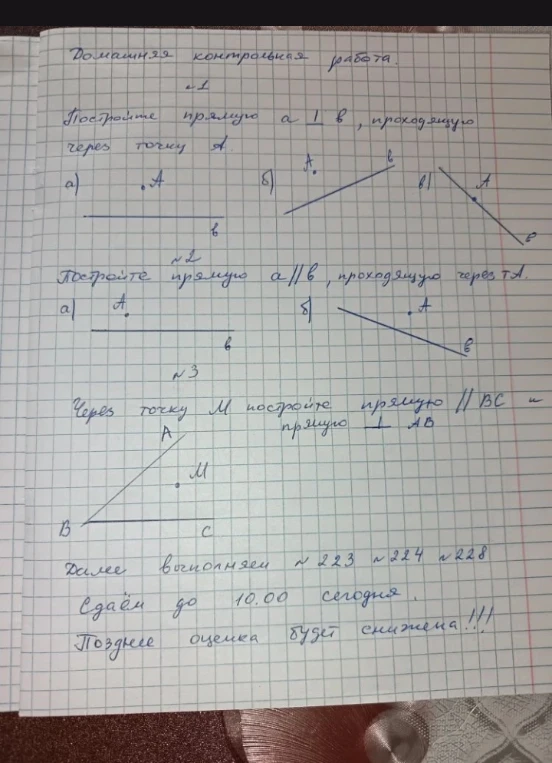 Домашняя контрольная работа.
№1
Постройте прямую а ⊥ в, проходящую
через точку А.
а) А в
б) А в
в) А в
№2
Постройте прямую а // в, проходящую через т А.
а) А в
б) А в
№3
Через точку М постройте прямую // ВС и
прямую ⊥ АВ
А
М
В С
Далее выполняем №223 №224 №228
Сдаём до 10.00 сегодня.
Позднее оценка будет снижена!!!